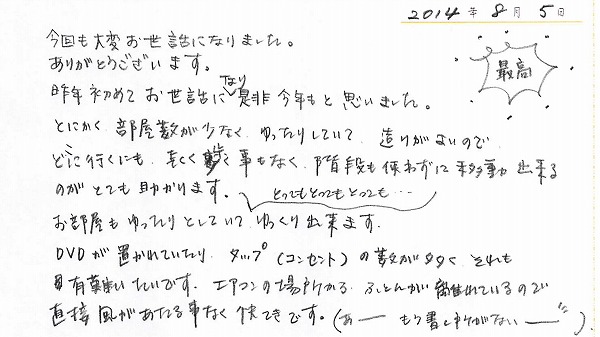 2014年8月5日
最高
今回も大変お世話になりました。
ありがとうございます。
昨年初めてお世話になり是非今年もと思いました。
とにかく部屋数が少なく、ゆったりしていて、造りがよいので
どこに行くにも、長く歩く事もなく、階段も使わずに移動出来る
のがとても助かります。
とってもとってもとっても…
お部屋もゆったりとしていてゆっくり出来ます。
DVDが置かれていたり、タップ(コンセント)の数が多く、それも
有難いです。エアコンの場所から、ふとんが離れているので
直接風があたる事なく快てきです。(あー もう書くトコがないー)